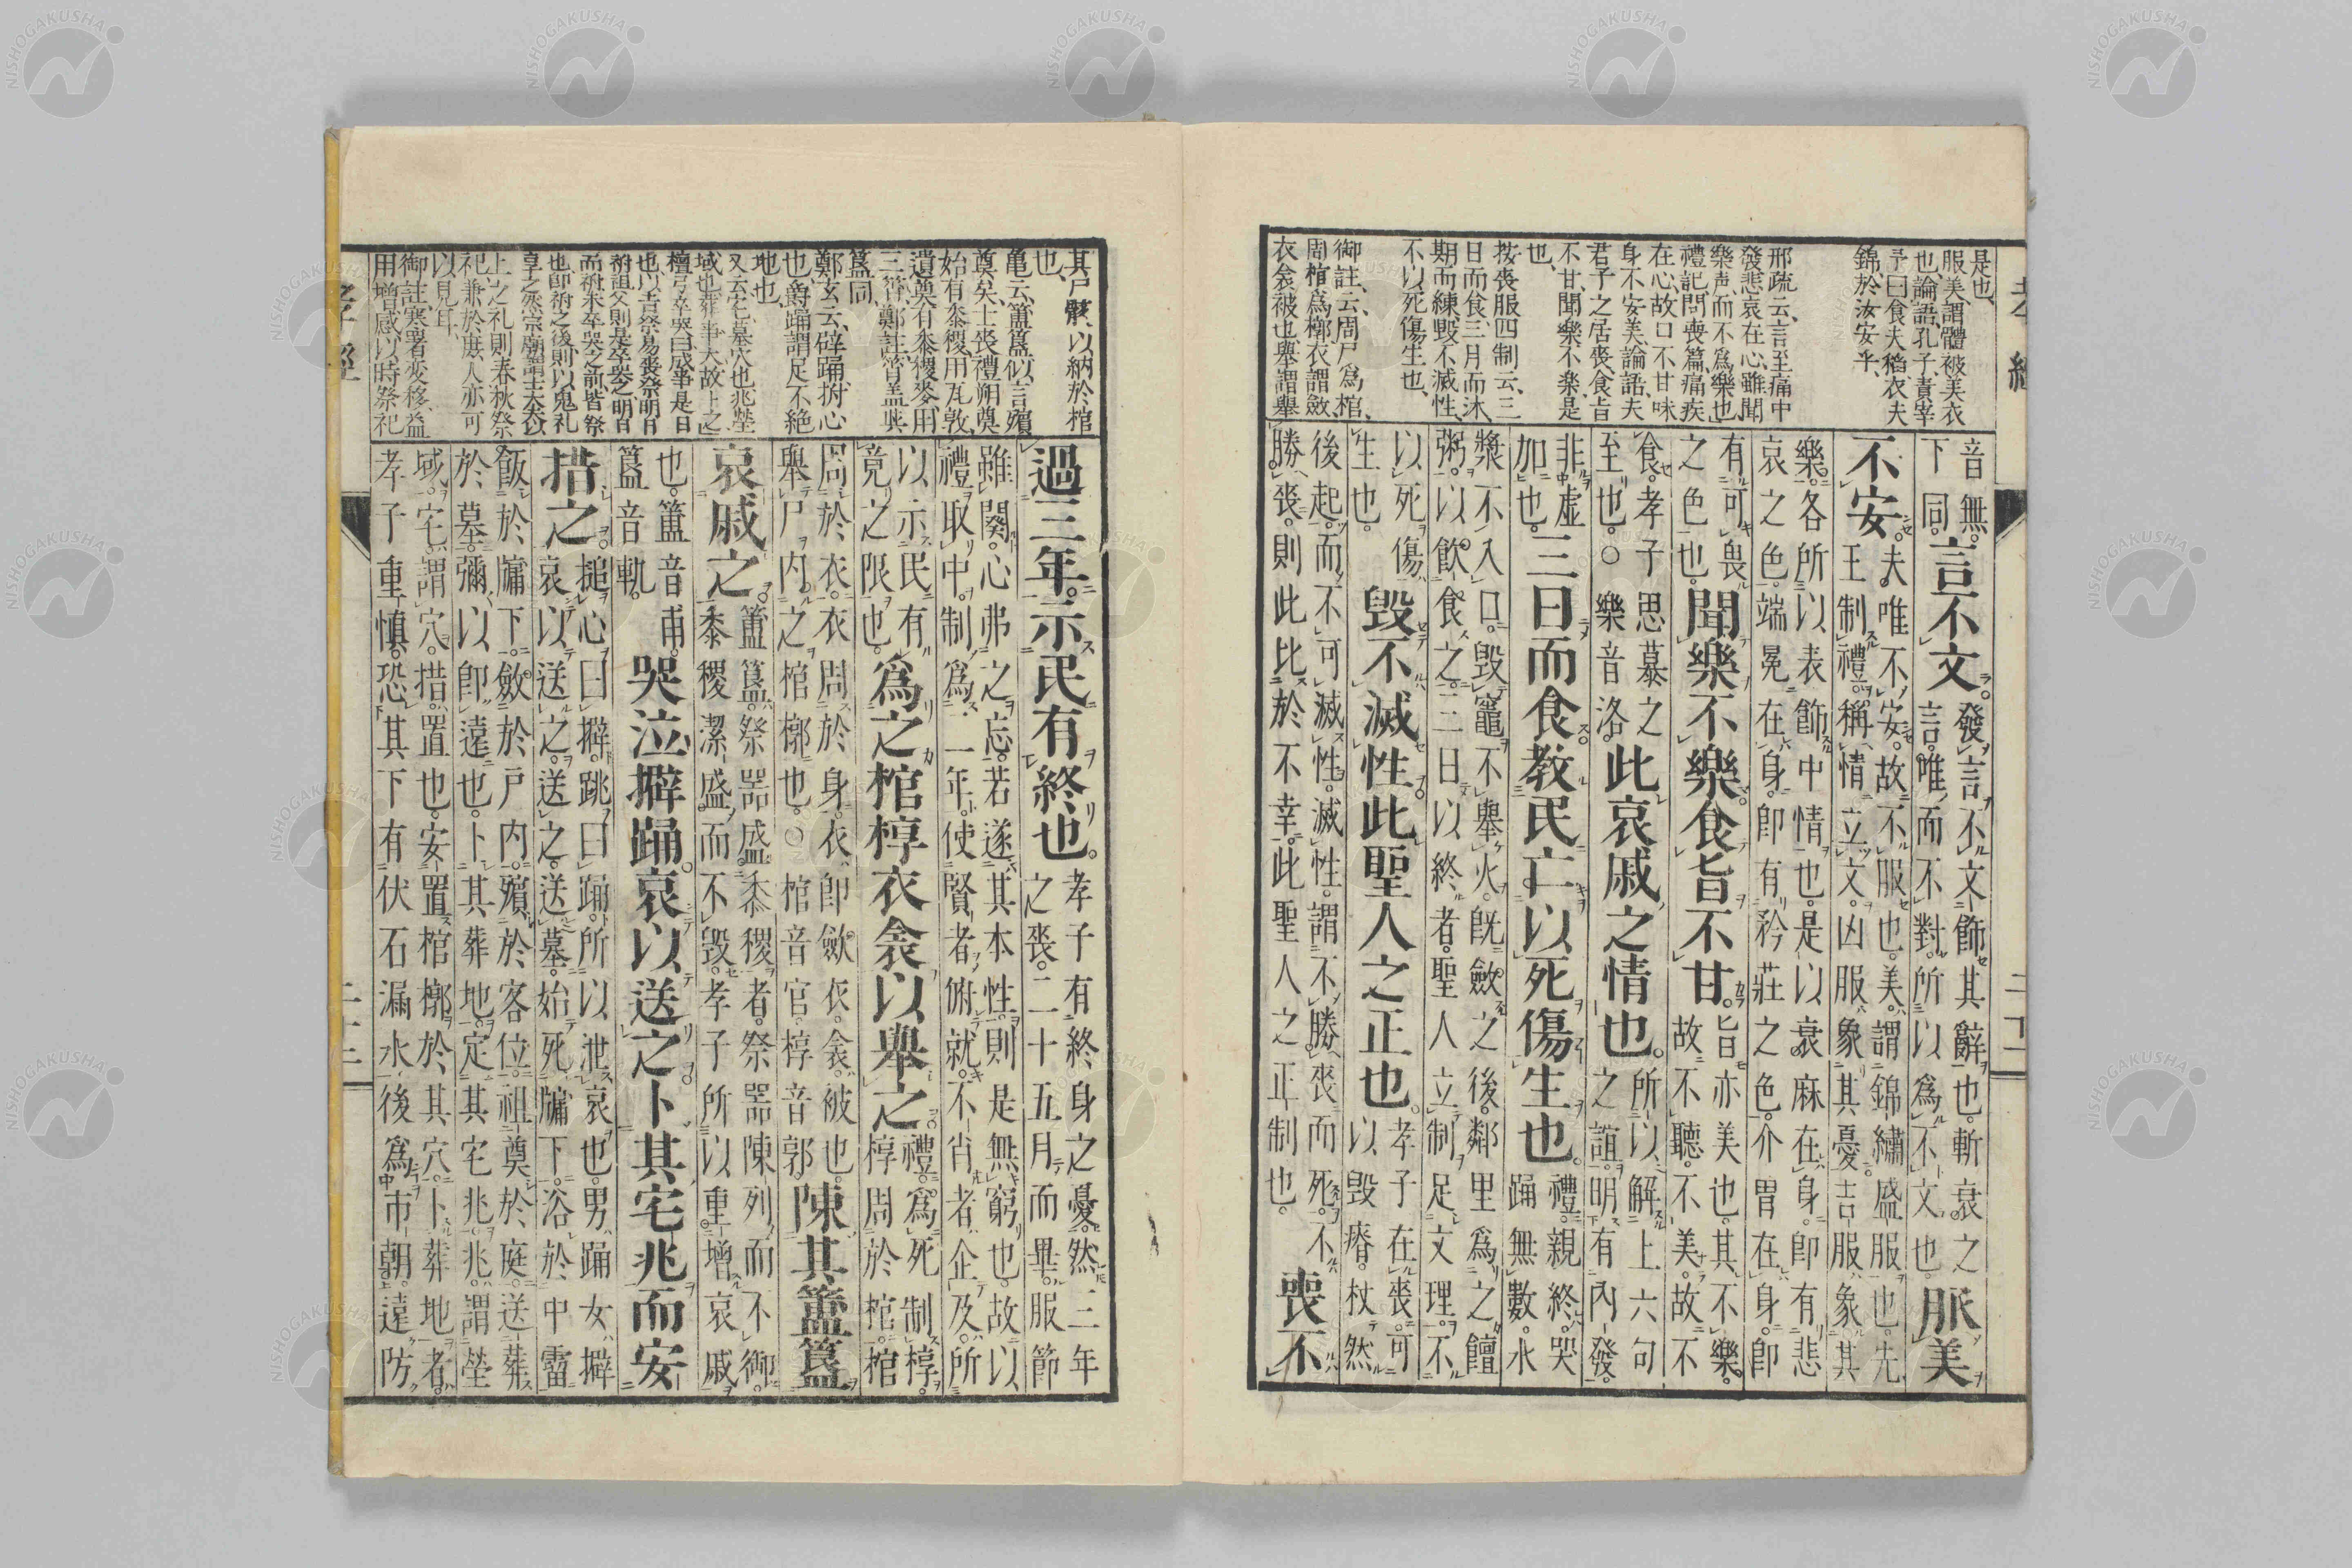 是也、
服美謂體被美衣
也、論語、孔子責宰
予曰食夫稻衣夫
錦於汝安乎、
邢疏云、言至痛中
發悲哀在心、雖聞
樂声、而不爲樂也、
禮記問喪篇、痛疾
在心、故口不甘味
身不安美、論語、夫
君子之居喪、食旨
不甘、聞樂不樂、是
也、
按喪服四制云、三
日而食、三月而沐、
期而練、毀不滅性、
不以死傷生也、
御註云、周尸爲棺、
周棺爲槨、衣謂斂
衣衾被也、舉謂舉
音無。下同。言不文。發言不文飾其辭也。斬衰之言。唯而不對。所以爲不文也。服美
不安。夫唯不安。故不服也。美。謂錦繡盛服也。先王制禮。稱情立文。凶服象其憂。吉服象其
樂。各所以表飾中情也。是以衰麻在身。卽有悲哀之色。端冕在身。卽有矜莊之色。介胄在身。卽
有可畏之色也。聞樂不樂食旨不甘。旨亦美也。其不樂。故不聽。不美。故不
食。孝子思慕之至也。○樂音洛。此哀戚之情也。所以解上六句之誼。明有內發。
非虛加也。三日而食教民亡以死傷生也。禮。親終。哭踊無數。水
漿不入口。毀竈不舉火。旣斂之後。鄰里爲之饘粥。以飮食之。三日以終者。聖人立制足文理。不
以死傷生也。毀不滅性此聖人之正也。孝子在喪。可以毀瘠。杖然
後起。而不可滅性。滅性。謂不勝喪而死。不勝喪。則此比於不幸。此聖人之正制也。喪不
其尸骸、以納於棺
也、
亀云、簠簋、似言殯
奠矣、士喪禮、朔奠
始有黍稷、用瓦敦、
遣奠有黍稷麥、用
三筲、鄭註、筲蓋與
簋同、
鄭玄云、辟踊、拊心
也、爵踊謂足不絶
地也、
又云、宅、墓穴也、兆塋
域也、葬事大、故卜之
檀弓、卒哭曰成事、是日
也、以吉祭易喪祭、明日
祔祖父、則是卒哭之明日
而祔、未卒哭之前、皆祭
也、卽祔之後、則以鬼礼
享之、然宗廟謂士大夫以
上之礼、則春秋祭
祀、兼於庶人、亦可
以見耳、
御註、寒暑変移、益
用増感以時祭祀
過三年。示民有終也。孝子有終身之憂。然三年之喪。二十五月而畢。服節
雖闋。心弗之忘。若遂其本性。則是無窮也。故以禮取中。制爲三年。使賢者俯就。不肖者企及。所
以示民有竟之限也。爲之棺椁衣衾以舉之。禮。爲死制椁。椁周於棺。棺
周於衣。衣周於身。衣。卽斂衣。衾。被也。舉尸內之棺槨也。○棺音官。椁音郭。陳其簠簋
哀戚之。簠簋。祭器。盛黍稷者。祭器陳列。而不御。黍稷潔盛。而不毀。孝子所以重増哀戚
也。簠音甫。簋音軌。哭泣擗踊。哀以送之。卜其宅兆而安
措之。搥心曰擗。跳曰踊。所以泄哀也。男踊女擗。哀以送之。送之。送墓。始死牖下。浴於中霤
飯於牖下。斂於戶內。殯於客位。祖奠於庭。送葬於墓。彌以卽遠也。卜其葬地。定其宅兆。兆。謂塋
域。宅。謂穴。措。置也。安置棺槨於其穴。卜葬地者。孝子重愼。恐其下有伏石漏水。後爲市朝。遠防